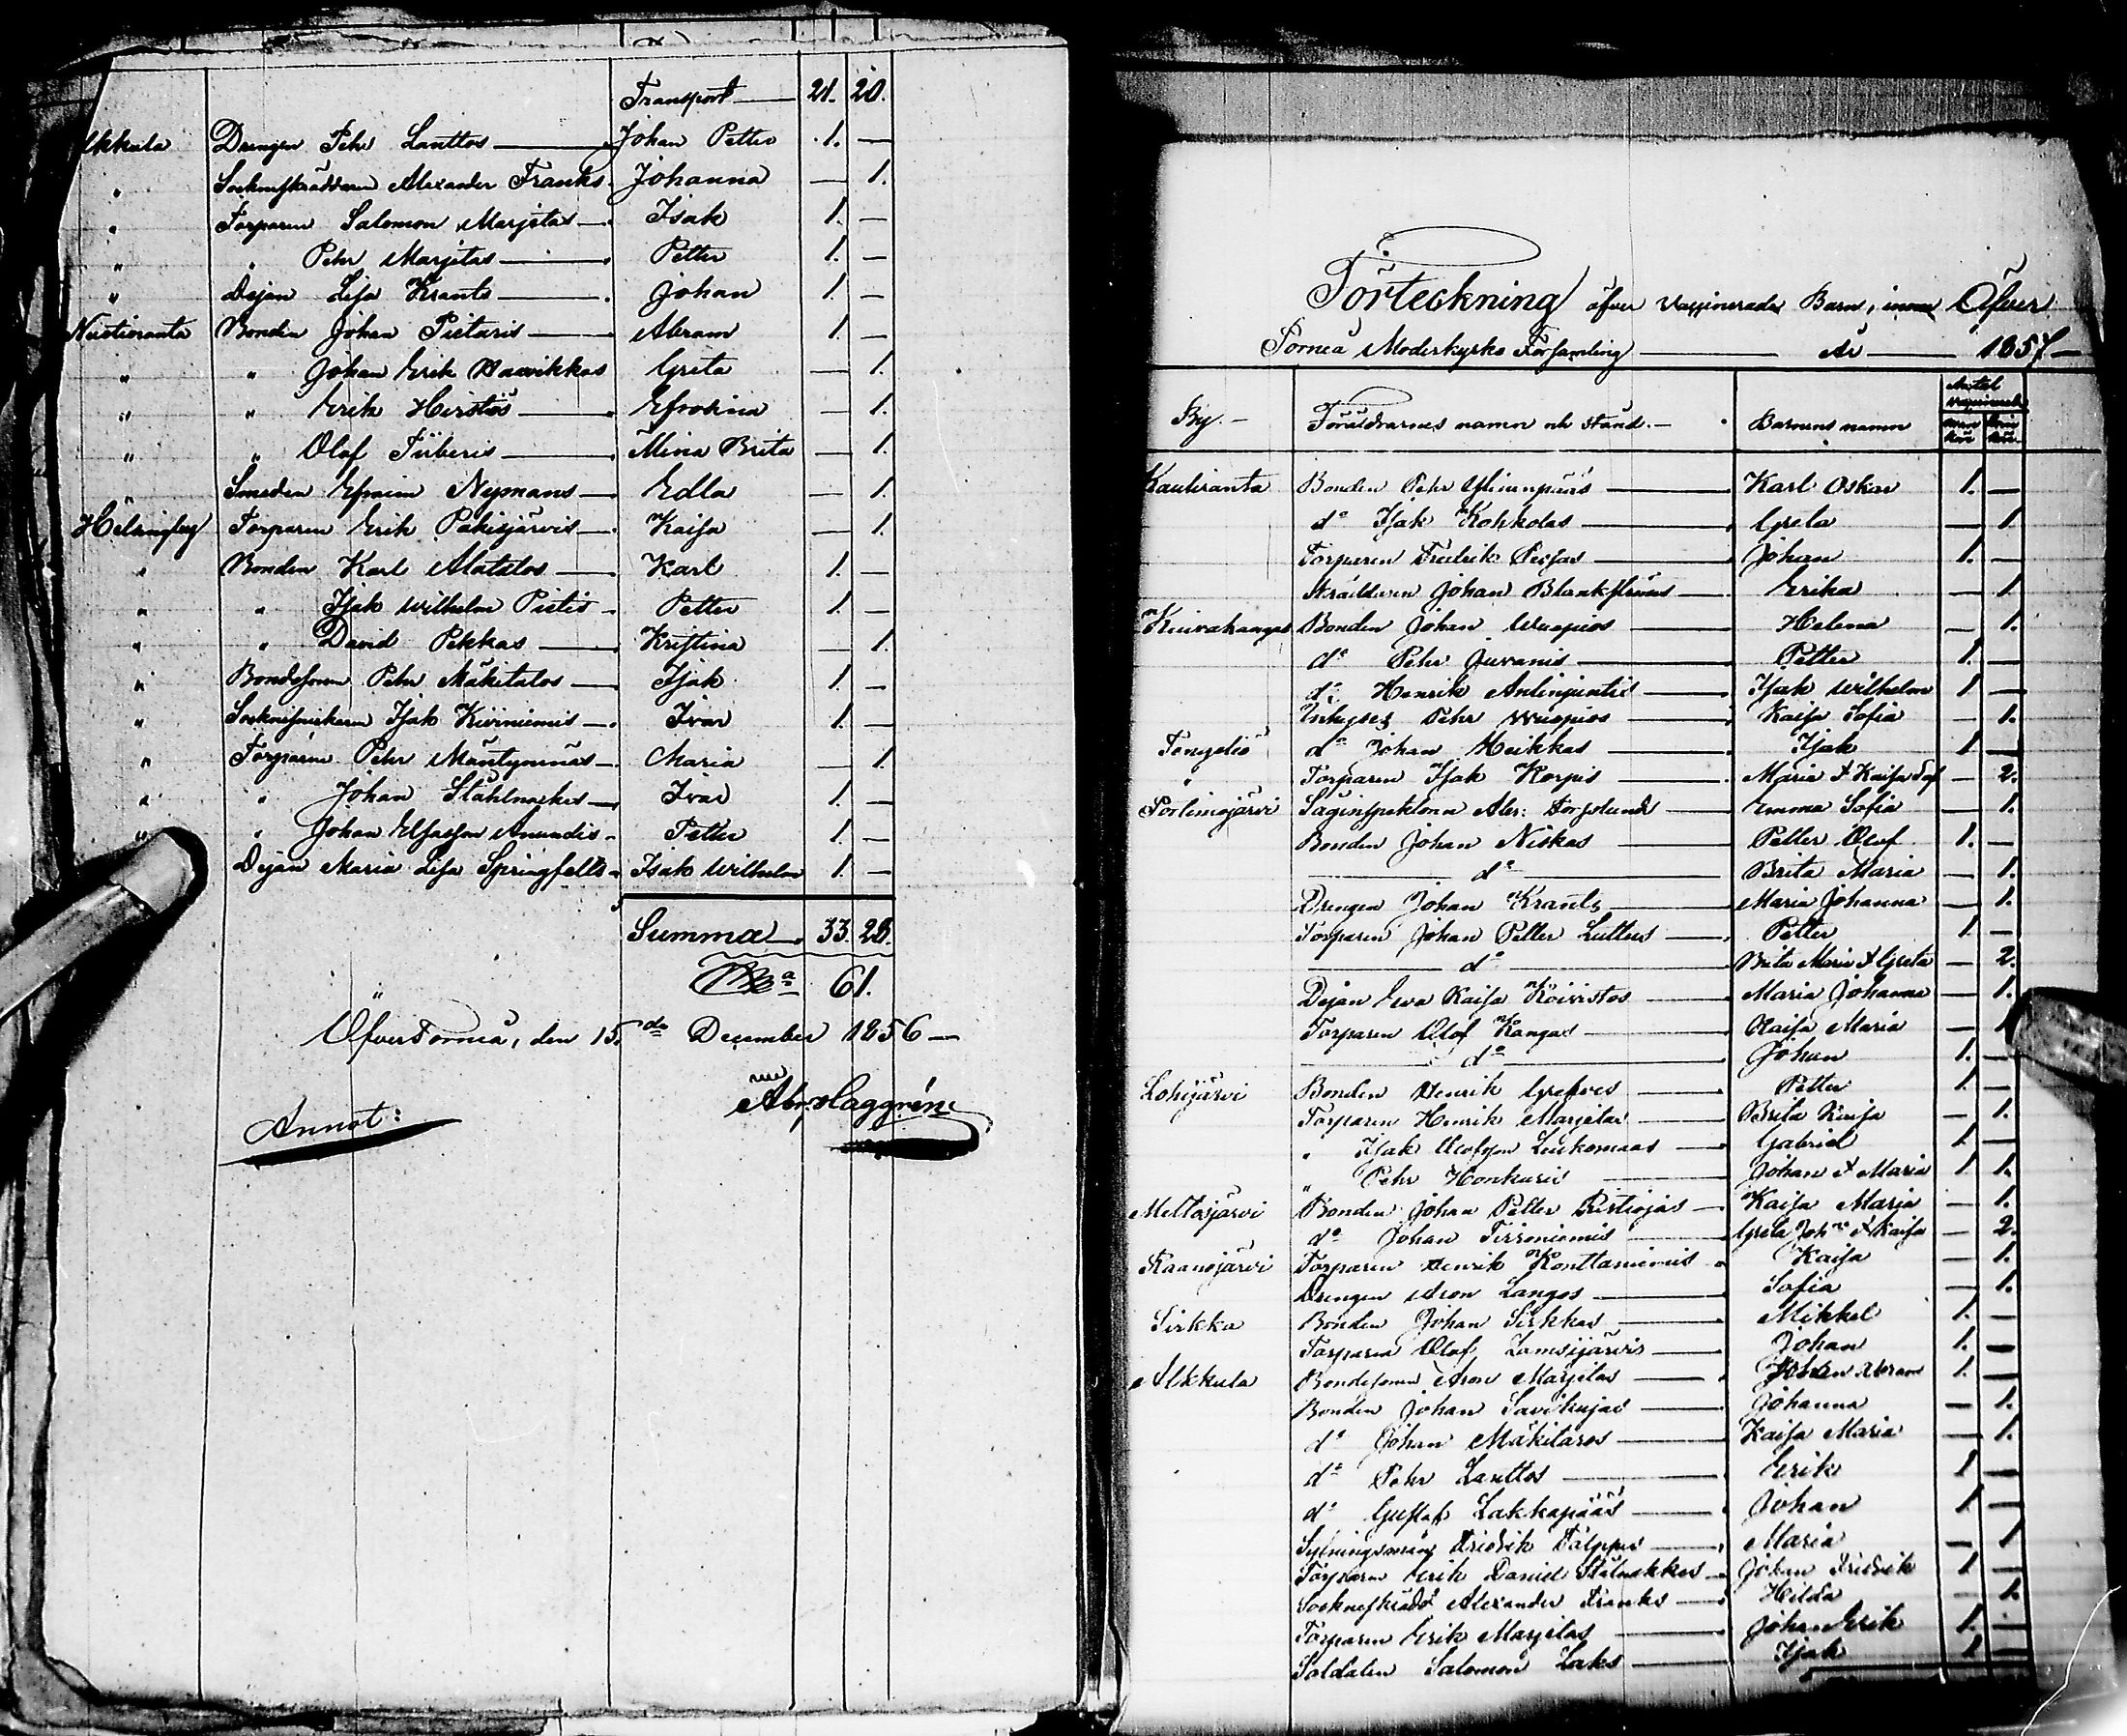 Transport 21. 20.
Alkkula Drengen Pehr Lanttos Johan Petter 1. —
" Socknesskräddaren Alexander Franks Johanna — 1.
" Torparen Salomon Marjetas Isak 1. —
" " Pehr Marjetas Petter 1. —
" Dejan Lisa Krants Johan 1. —
Nuotioranta Bonden Johan Pietaris Abram 1. —
" " Johan Erik Waarikkas Greta — 1.
" " Erik Heistös Efrosina — 1.
" " Olof Fiiberis Mina Brita — 1.
" Smeden Efraim Nymans Edla — 1.
Helsingby Torparen Erik Pakisjärvis Kaisa — 1.
" Bonden Karl Alatalos Karl 1. —
" " Isak Wilhelm Pietis Petter 1. —
" " David Pekkas Kristina — 1.
" Bondesonen Pehr Mäkitalos Isak 1. —
" Isak Kiviniemis Ivar 1. —
" Torparen Pehr Mäntymääs Maria — 1.
" " Johan Stålnackes Ivar 1. —
" " Johan Anundis Petter 1. —
Dejan Maria Lisa Springfelts Isak Wilhelm 1. —
Summa 33. 28.
61.
ÖfverTorneå, den 15de December 1856 —
Abr. Haggrén
Annot:
Förteckning öfver vaccinerade Barn, inom Öfver
Torneå Moderkyrko Församling År 1857 —
By. Föräldrarnes namn och stånd. Barnens namn Antal vaccinerade
Mankön Qvinkön
Kauliranta Bonden Pehr Karl Oskar 1. —
do Isak Kohkolas Greta — 1.
Torparen Fredrik Johan 1. —
Skräddaren Johan Erika — 1.
Kuivakangas Bonden Johan Wuopios Helena — 1.
do Pehr Juvanis Petter 1. —
do Henrik Isak Wilhelm 1 —
Inhyses Pehr Wuopios Kaisa Sofia — 1.
Tengeliö do Johan Heikkas Isak 1 —
" Torparen Isak Korpis Maria & Kaisa Sof — 2.
Portimojärvi Saginspektoren Alex: Emma Sofia — 1.
Bonden Johan Niskas Petter Olof 1. —
do Brita Maria — 1.
Drengen Johan Krants Maria Johanna — 1.
Torparen Johan Petter Luttus Petter 1 —
do Brita Maria & Greta — 2.
Dejan Eva Kaisa Koivistos Maria Johanna — 1.
Torparen Olof Kangas Kaisa Maria — 1
do Johan 1. —
Lohijärvi Bonden Henrik Grefves Petter 1. —
Torparen Henrik Marjetas Brita Kaisa — 1.
" Isak Olofson Leukomaas Gabriel 1 —
" Pehr Honkaris Johan & Maria 1 1.
Meltosjärvi Bonden Johan Petter Ristiojas Kaisa Maria — 1.
do Johan Tirroniemis Greta Joha & Kaisa — 2.
Raanojärvi Torparen Henrik Konttaniemis Kaisa — 1.
Drengen Aron Langos Sofia — 1.
Sirkka Bonden Johan Sirkkas Mikkel 1. —
Torparen Olof Lamsijärvis Johan 1. —
Alkkula Bondesonen Aron Marjetas Johan Abram 1. —
Bonden Johan Savikujas Johanna — 1.
do Johan Mäkitaros Kaisa Maria — 1.
do Pehr Lanttos Erik 1 —
do Gustaf Lakkapääs Johan 1 —
Fridrik Maria — 1
Torparen Erik Daniel Stålnakkes Johan Fridrik 1 —
Alexander Franks Hilda — 1.
Torparen Erik Marjetas Johan Erik 1. —
Soldaten Salomon Laks Isak 1 —